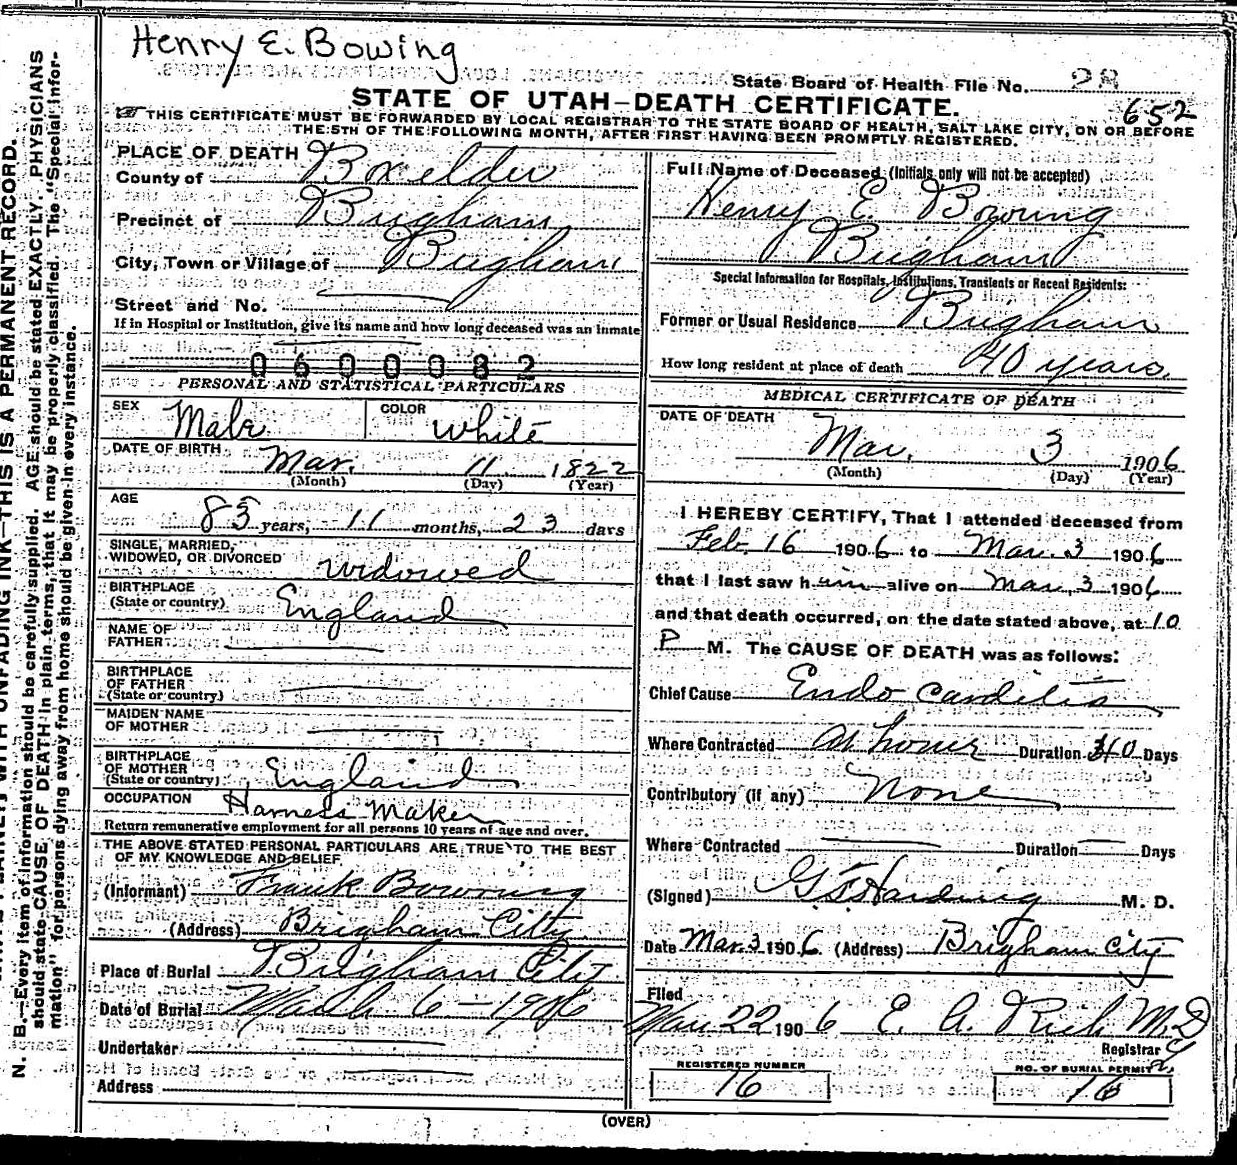 Henry E. Bowing
State Board of Health File No. 28
652
STATE OF UTAH—DEATH CERTIFICATE.
THIS CERTIFICATE MUST BE FORWARDED BY LOCAL REGISTRAR TO THE STATE BOARD OF HEALTH, SALT LAKE CITY, ON OR BEFORE
THE 5TH OF THE FOLLOWING MONTH, AFTER FIRST HAVING BEEN PROMPTLY REGISTERED.
PLACE OF DEATH
County of Boxelder
Precinct of Brigham
City, Town or Village of Brigham
Street and No.
If in Hospital or Institution, give its name and how long deceased was an inmate
0600082
PERSONAL AND STATISTICAL PARTICULARS
SEX Male COLOR White
DATE OF BIRTH Mar. 11 1822
(Month) (Day) (Year)
AGE 83 years, 11 months, 23 days
SINGLE, MARRIED,
WIDOWED, OR DIVORCED widowed
BIRTHPLACE
(State or country) England
NAME OF
FATHER
BIRTHPLACE
OF FATHER
(State or country)
MAIDEN NAME
OF MOTHER
BIRTHPLACE
OF MOTHER
(State or country) England
OCCUPATION Harness Maker
Return remunerative employment for all persons 10 years of age and over.
THE ABOVE STATED PERSONAL PARTICULARS ARE TRUE TO THE BEST
OF MY KNOWLEDGE AND BELIEF.
(Informant) Frank Bowring
(Address) Brigham City
Place of Burial Brigham City
Date of Burial March 6 – 1906
Undertaker
Address
Full Name of Deceased (Initials only will not be accepted)
Henry E Bowring
Brigham
Special Information for Hospitals, Institutions, Transients or Recent Residents:
Former or Usual Residence Brigham
How long resident at place of death 40 years
MEDICAL CERTIFICATE OF DEATH
DATE OF DEATH
Mar. 3 1906
(Month) (Day) (Year)
I HEREBY CERTIFY, That I attended deceased from
Feb. 16 1906 to Mar. 3 1906
that I last saw him alive on Mar. 3 1906
and that death occurred, on the date stated above, at 10
P M. The CAUSE OF DEATH was as follows:
Chief Cause Endo carditis
Where Contracted at home Duration 40 Days
Contributory (if any) None
Where Contracted Duration Days
(Signed) Harding M. D.
Date Mar. 3 1906 (Address) Brigham City
Filed
Mar. 22 1906 E. A. Rich M.D
Registrar
REGISTERED NUMBER
16
NO. OF BURIAL PERMIT
16
(OVER)
N. B.—Every item of information should be carefully supplied. AGE should be stated EXACTLY. PHYSICIANS
should state CAUSE OF DEATH in plain terms, that it may be properly classified. The "Special Infor-
mation" for persons dying away from home should be given in every instance.
WITH UNFADING INK—THIS IS A PERMANENT RECORD.